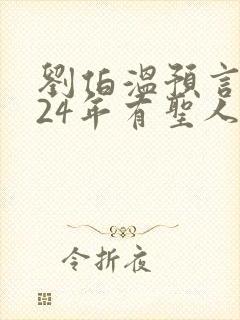 劉伯溫預言
24年有聖人
令折夜